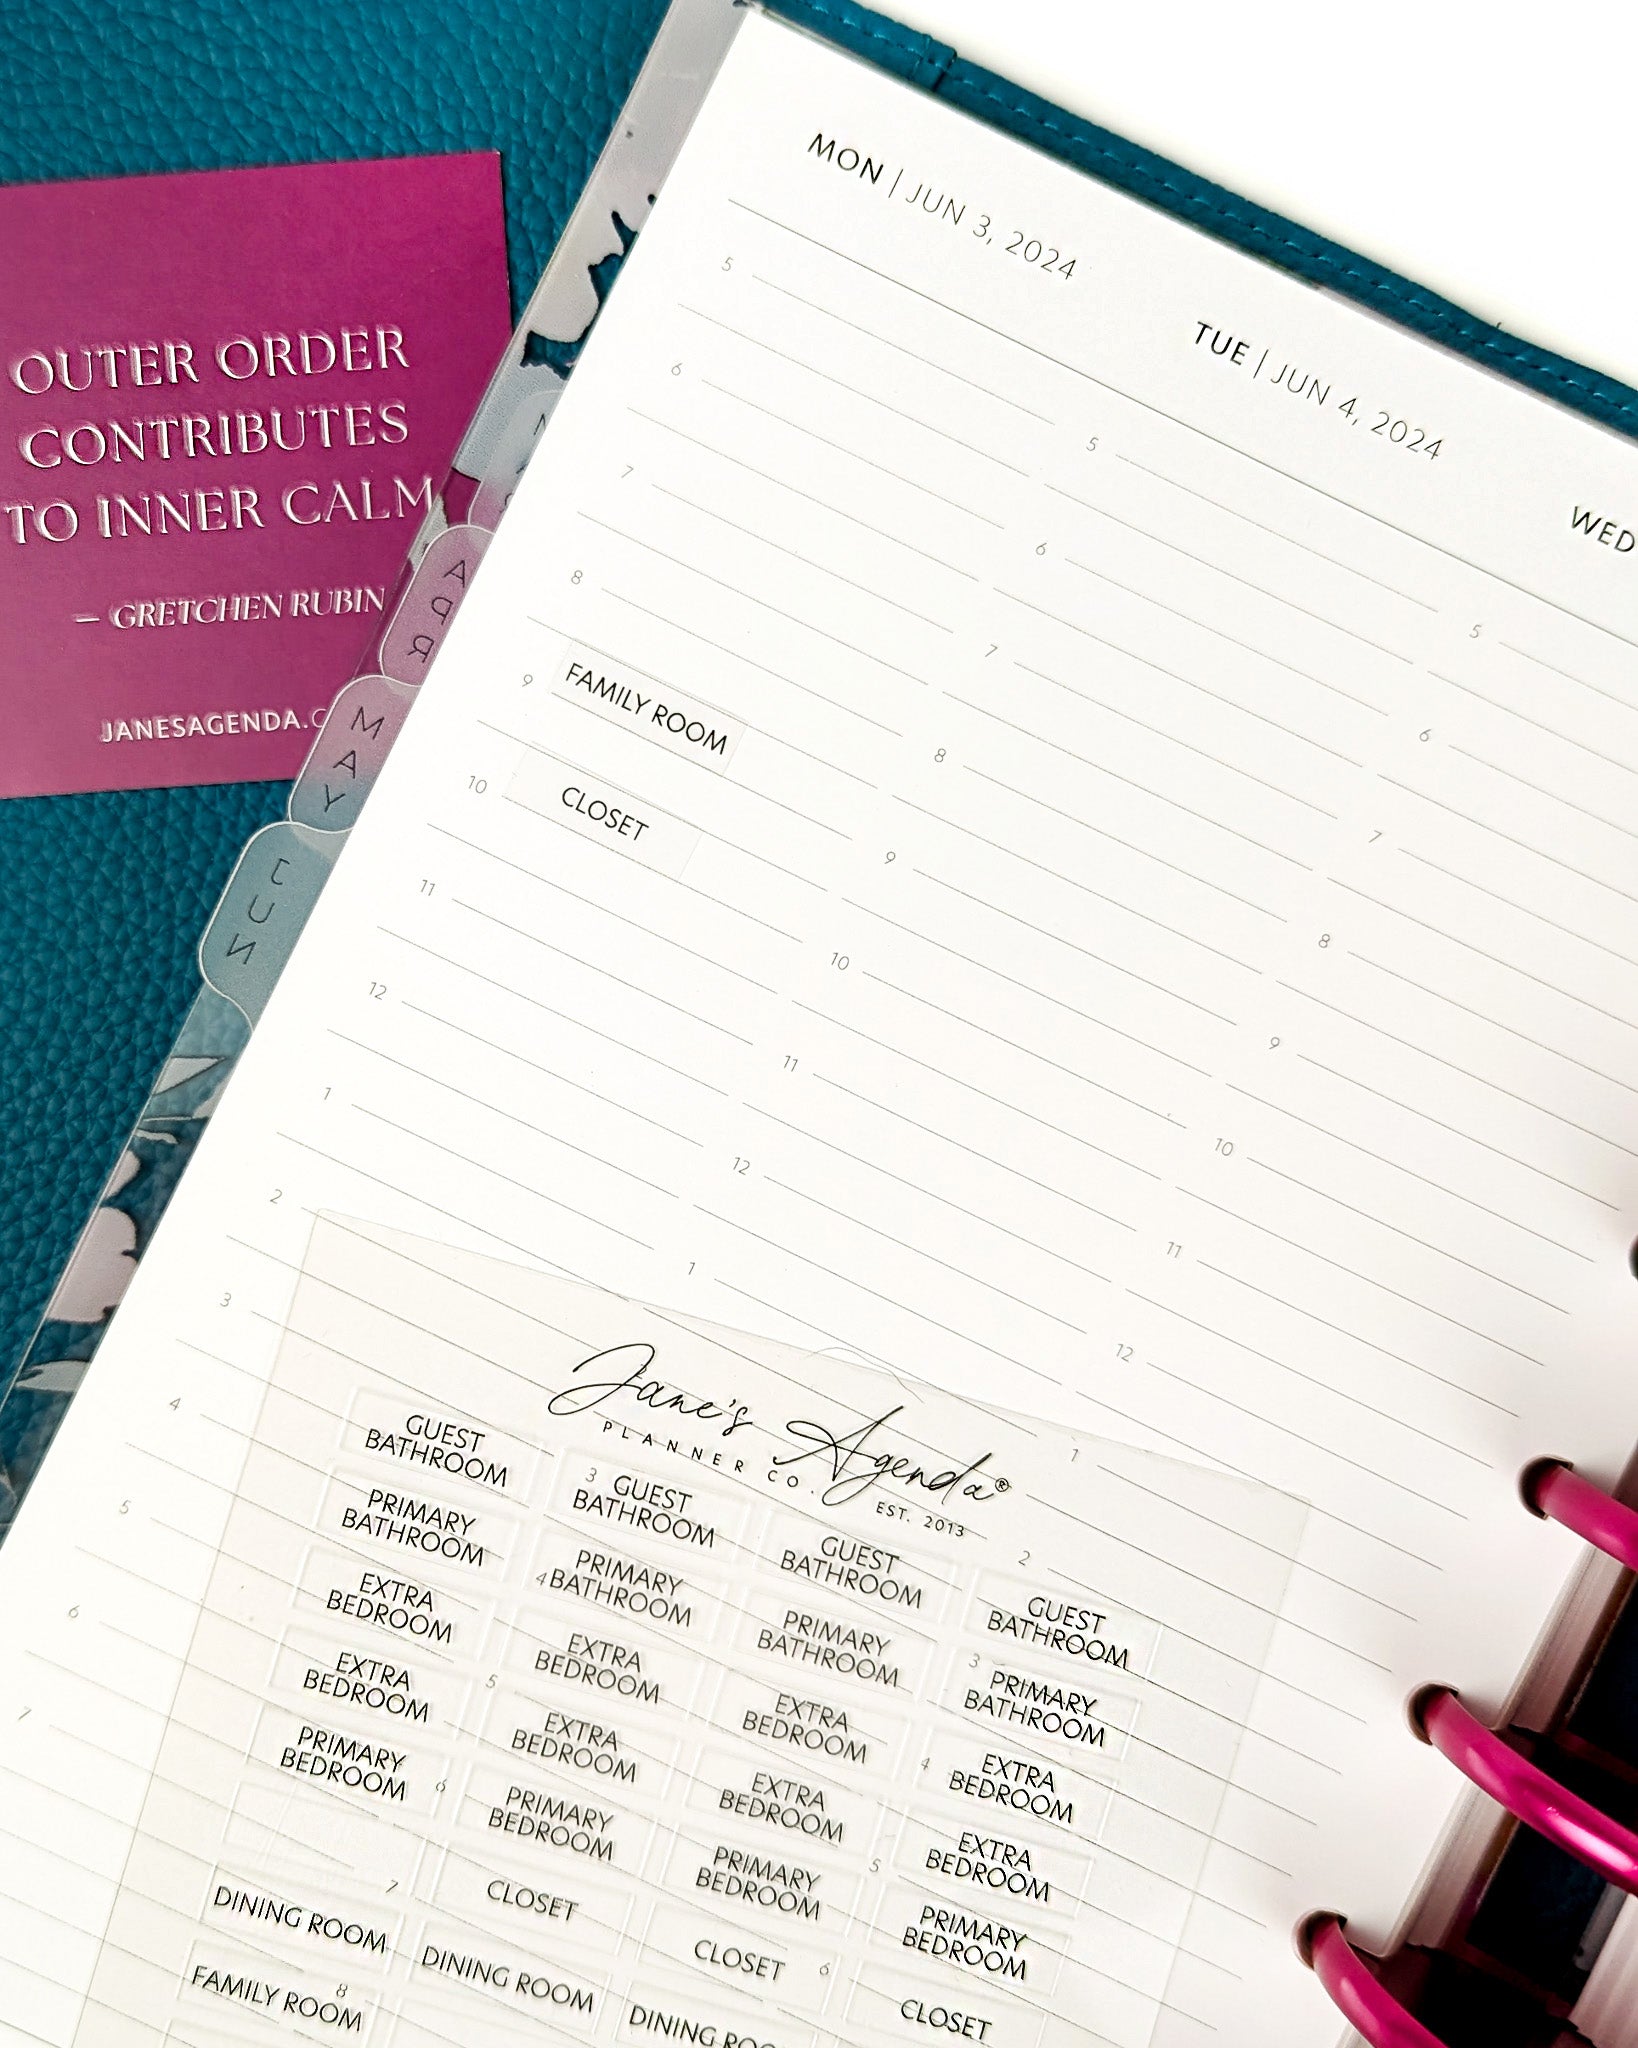 OUTER ORDER
CONTRIBUTES
TO INNER CALM
— GRETCHEN RUBIN
JANESAGENDA.C
APR
MAY
JUN
MON | JUN 3, 2024
5
6
7
8
9 FAMILY ROOM
10 CLOSET
11
12
1
2
3
4
5
6
7
TUE | JUN 4, 2024
5
6
7
8
9
10
11
12
1
3
4
5
6
7
8
WED
5
6
7
8
9
10
11
12
1
2
3
4
5
6
Jane's Agenda®
PLANNER CO. EST. 2013
GUEST BATHROOM
GUEST BATHROOM
GUEST BATHROOM
GUEST BATHROOM
PRIMARY BATHROOM
PRIMARY BATHROOM
PRIMARY BATHROOM
PRIMARY BATHROOM
EXTRA BEDROOM
EXTRA BEDROOM
EXTRA BEDROOM
EXTRA BEDROOM
EXTRA BEDROOM
EXTRA BEDROOM
EXTRA BEDROOM
EXTRA BEDROOM
PRIMARY BEDROOM
PRIMARY BEDROOM
PRIMARY BEDROOM
PRIMARY BEDROOM
CLOSET
CLOSET
CLOSET
DINING ROOM
DINING ROOM
DINING ROO
FAMILY ROOM